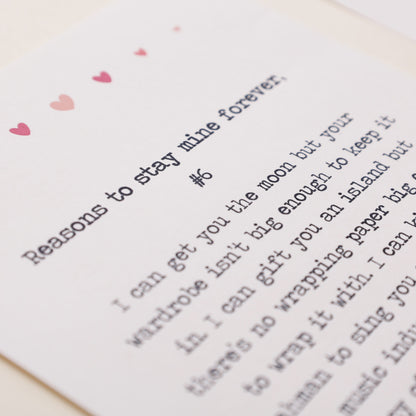 Reasons to stay mine forever.
#6
I can get you the moon but your
wardrobe isn't big enough to keep it
in. I can gift you an island but
there's no wrapping paper big
to wrap it with. I can
to sing you
music